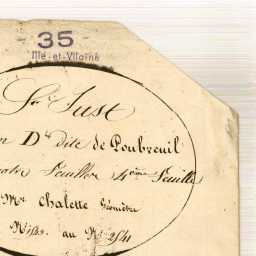 35
Ille-et-Vilaine
St Just
on Dte dite de Poubreuil
quatre feuilles 4ème feuille
Mr Chalette Géomètre
au